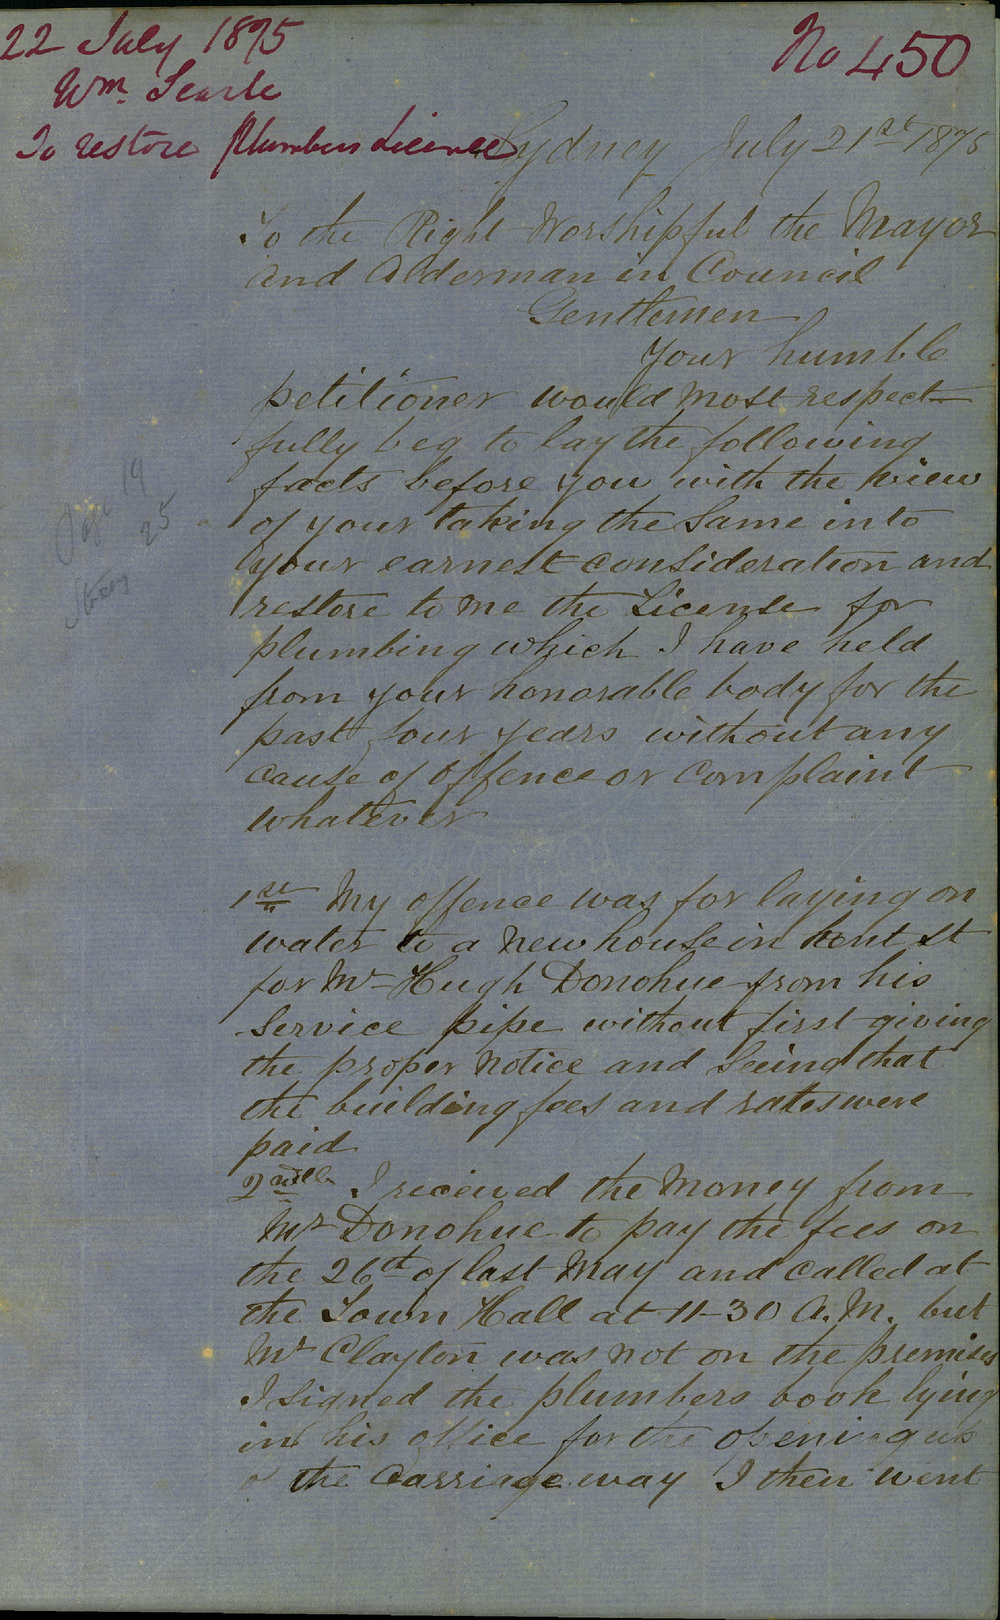 22 July 1875
No 450
Wm. Searle
To restore Plumbers Licence
Sydney July 21st 1875
To the Right Worshipful the Mayor
and Alderman in Council
Gentlemen
Your humble
petitioner would most respect-
fully beg to lay the following
facts before you with the view
of your taking the same into
your earnest consideration and
restore to me the License for
plumbing which I have held
from your honorable body for the
past four years without any
cause of offence or complaint
whatever
1st My offence was for laying on
water to a new house in Kent St
for Mr Hugh Donohue from his
service pipe without first giving
the proper notice and seeing that
the building fees and rates were
paid
I received the money from
Mr Donohue to pay the fees on
the 26th of last May and called at
the Town Hall at 11-30 A.M. but
Mr Clayton was not on the premises
I signed the plumbers book lying
in his office for the opening up
of the Carriage way I then went
19
25